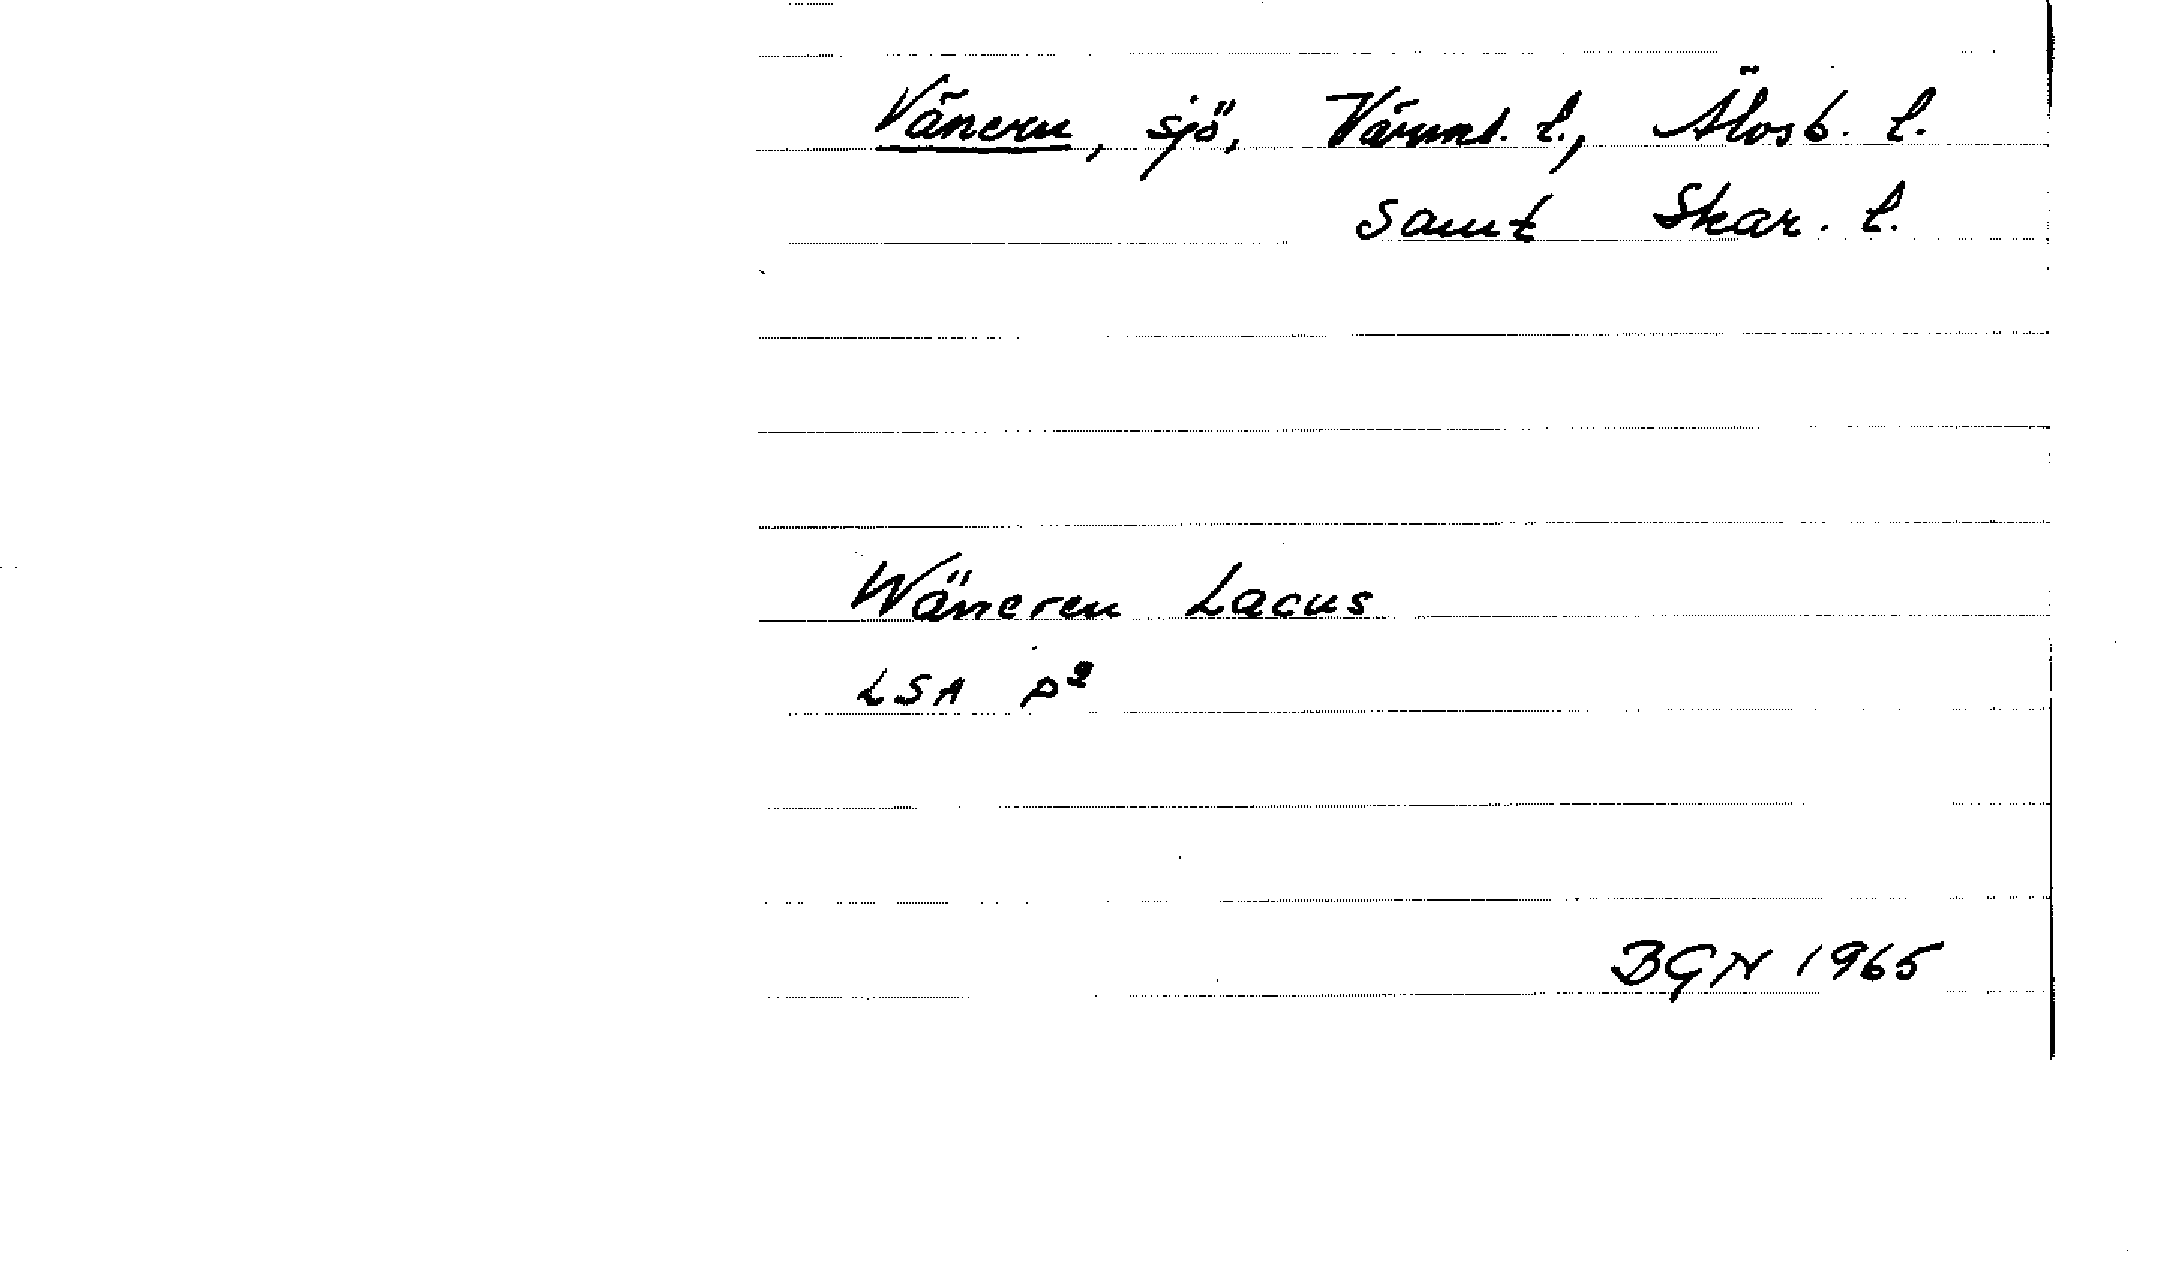 Vänern, sjö, Värml. l., Älvsb. l.
samt Skar. l.
Wäneren Lacus
LSA p²
BGN 1965